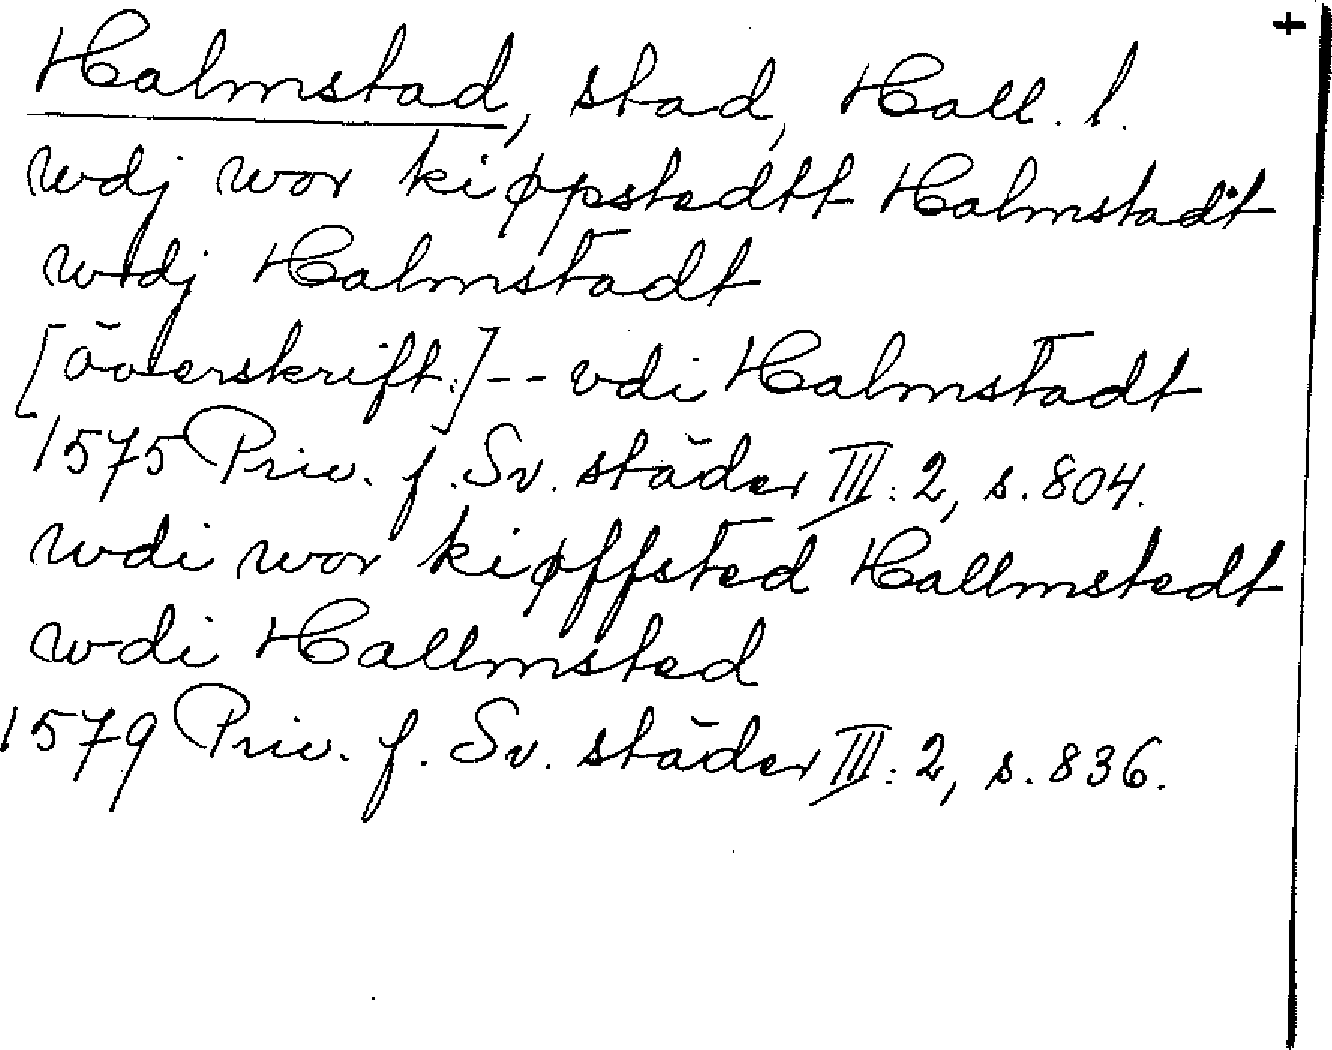 +
Halmstad, stad, Hall. l.
wdj wor kiøppstedtt Halmstadt
wdj Halmstadt
[överskrift.]-- vdi Halmstadt
1575 Priv. f. Sv. städer III: 2, s. 804.
wdi wor kiøffsted Hallmstedt
wdi Hallmsted
1579 Priv. f. Sv. städer III: 2, s. 836.